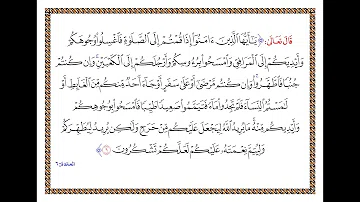 قَالَ تَعَالَىٰ: ﴿يَٰٓأَيُّهَا ٱلَّذِينَ ءَامَنُوٓاْ إِذَا قُمۡتُمۡ إِلَى ٱلصَّلَوٰةِ فَٱغۡسِلُواْ وُجُوهَكُمۡ
وَأَيۡدِيَكُمۡ إِلَى ٱلۡمَرَافِقِ وَٱمۡسَحُواْ بِرُءُوسِكُمۡ وَأَرۡجُلَكُمۡ إِلَى ٱلۡكَعۡبَيۡنِۚ وَإِن كُنتُمۡ
جُنُبٗا فَٱطَّهَّرُواْۚ وَإِن كُنتُم مَّرۡضَىٰٓ أَوۡ عَلَىٰ سَفَرٍ أَوۡ جَآءَ أَحَدٞ مِّنكُم مِّنَ ٱلۡغَآئِطِ أَوۡ
لَٰمَسۡتُمُ ٱلنِّسَآءَ فَلَمۡ تَجِدُواْ مَآءٗ فَتَيَمَّمُواْ صَعِيدٗا طَيِّبٗا فَٱمۡسَحُواْ بِوُجُوهِكُمۡ
وَأَيۡدِيكُم مِّنۡهُۚ مَا يُرِيدُ ٱللَّهُ لِيَجۡعَلَ عَلَيۡكُم مِّنۡ حَرَجٖ وَلَٰكِن يُرِيدُ لِيُطَهِّرَكُمۡ
وَلِيُتِمَّ نِعۡمَتَهُۥ عَلَيۡكُمۡ لَعَلَّكُمۡ تَشۡكُرُونَ ٦﴾ المائدة: ٦